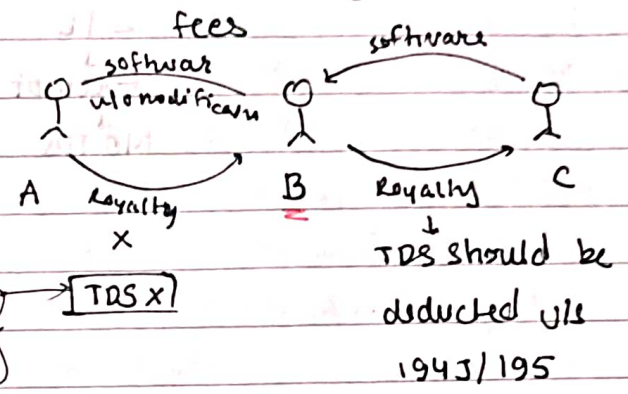 fees
softwar
w/o modification
software
A
Royalty
X
B
Royalty
C
TDS X
↓
TDS should be
deducted u/s
194J/195